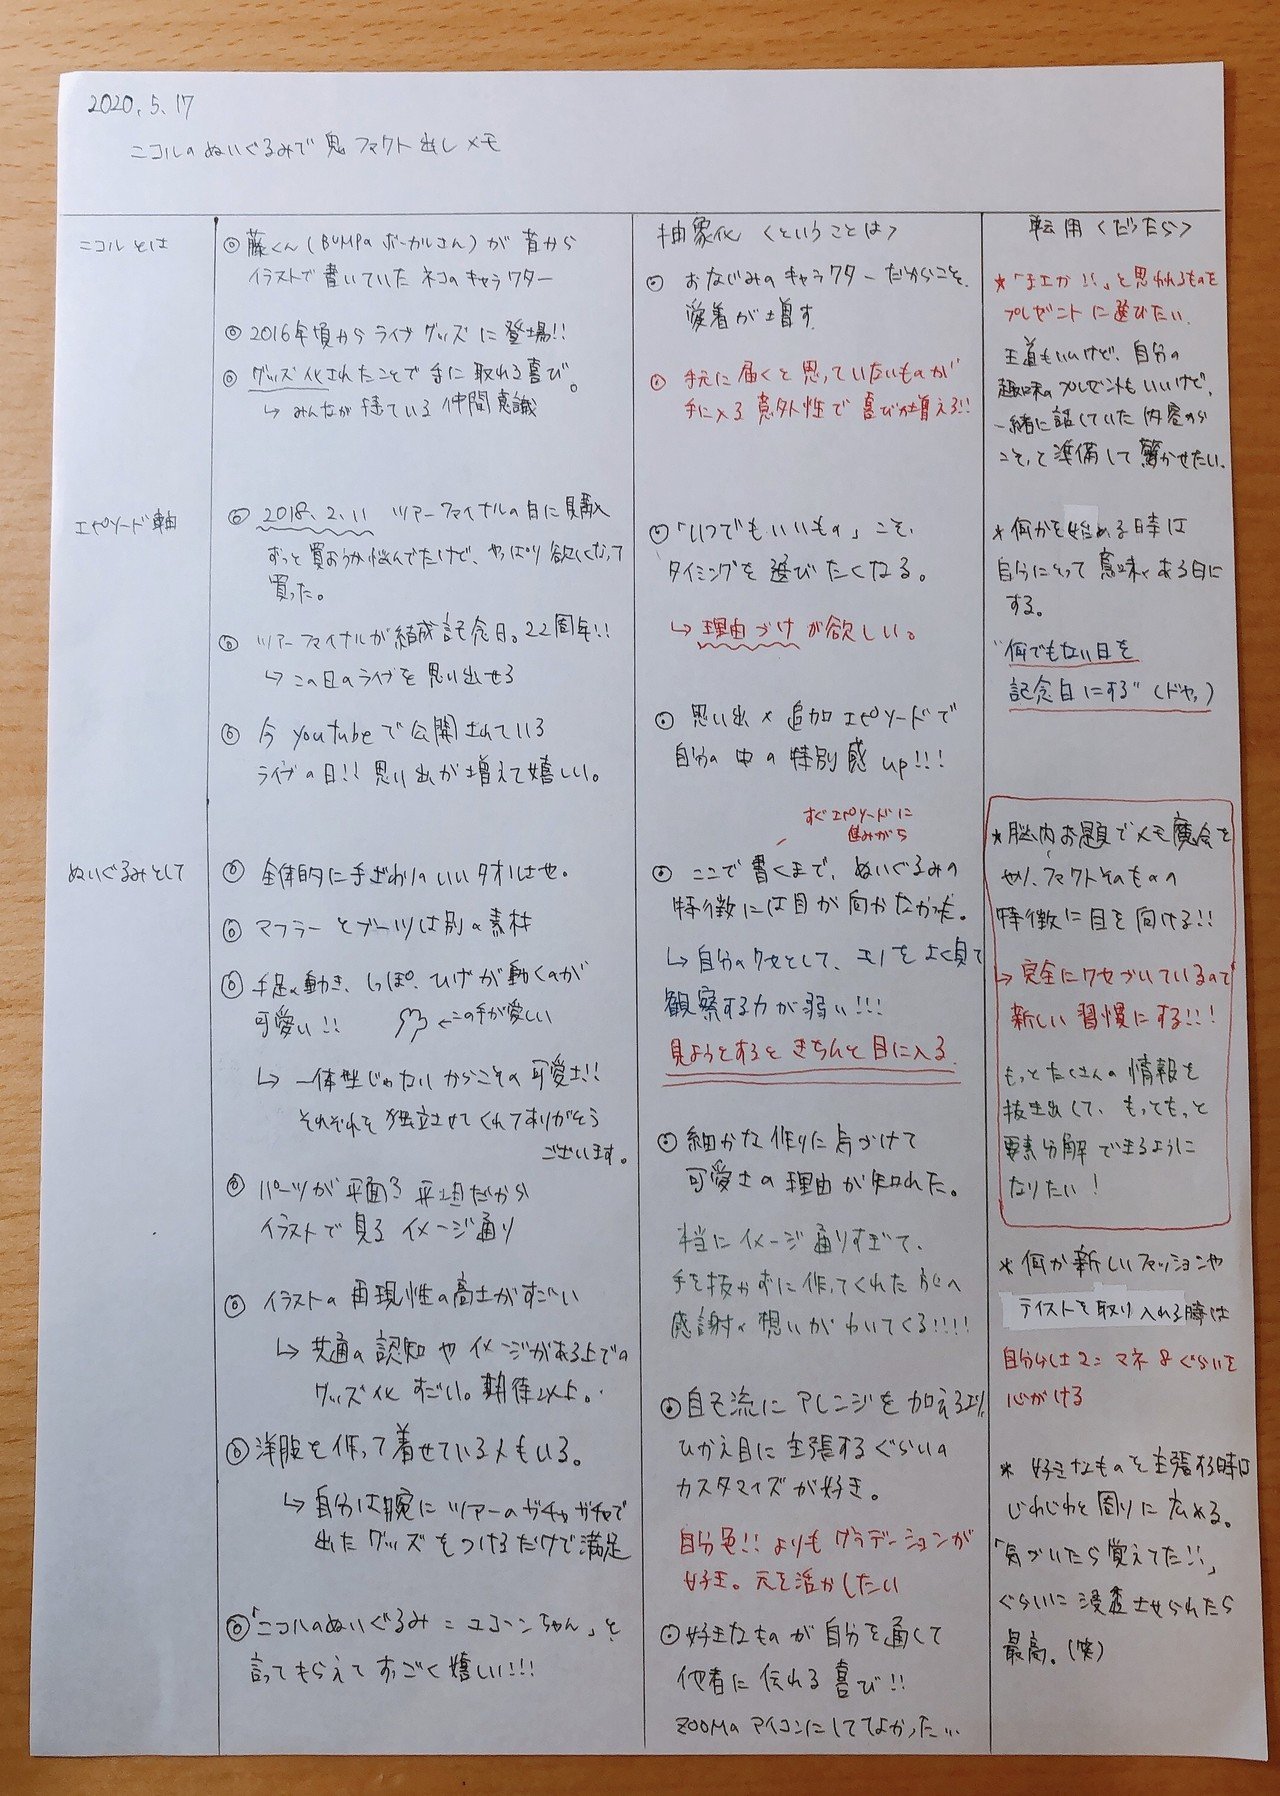 2020.5.17
ニコルのぬいぐるみで鬼ファクト出しメモ
ニコルとは
◎藤くん(BUMPのボーカルさん)が昔から
イラストで書いていたネコのキャラクター
◎2016年頃からライブグッズに登場!!
◎グッズ化されたことで手に取れる喜び。
↳みんなが持ている仲間意識
エピソード軸
◎2018.2.11 ツアーファイナルの日に購入
ずっと買おうか悩んでたけど、やっぱり欲しくなって
買った。
◎ツアーファイナルが結成記念日。22周年!!
↳この日のライブを思い出せる
◎今youtubeで公開されている
ライブの日!! 思い出が増えて嬉しい。
ぬいぐるみとして
◎全体的に手ざわりのいいタオルさせ。
◎マフラーとブーツは別の素材
◎手足の動き、しっぽ、ひげが動くのが
可愛い!! ←この手が愛しい
↳一体型じゃないからこその可愛さ!!
それぞれを独立させてくれてありがとう
ございます。
◎パーツが平面3平均だから
イラストで見るイメージ通り
◎イラストの再現性の高さがすごい
↳共通の認知やイメージがある上での
グッズ化すごい。期待以上。
◎洋服を作って着せている人もいる。
↳自分は腕にツアーのガチャガチャで
出たグッズをつけるだけで満足
◎「ニコルのぬいぐるみ=ユーンちゃん」と
言ってもらえてすっごく嬉しい!!!
抽象化〈ということは〉
◎おなじみのキャラクターだからこそ、
愛着が増す
◎手元に届くと思っていないものが
手に入る意外性で喜びが増える!!
◎「いつでもいいもの」こそ、
タイミングを選びたくなる。
↳理由づけが欲しい。
◎思い出×追加エピソードで
自分の中の特別感up!!!
すぐエピソードに
進みがち
◎ここで書くまで、ぬいぐるみの
特徴には目が向かなかった。
↳自分のクセとして、モノをよく見て
観察する力が弱い!!!
見ようとするときちんと目に入る
◎細かな作りに気づけて
可愛さの理由が知れた。
本当にイメージ通りすぎて、
手を抜かずに作ってくれた方への
感謝の想いがわいてくる!!!!
◎自己流にアレンジを加えるより、
ひかえ目に主張するぐらいの
カスタマイズが好き。
自分色!! よりもグラデーションが
好き。元を活かしたい
◎好きなものが自分を通して
他者に伝れる喜び!!
ZOOMのアイコンにしててよかった…
転用〈だったら〉
★「まさか!!」と思われるものを
プレゼントに選びたい。
王道もいいけど、自分の
趣味のプレゼントもいいけど、
一緒に話していた内容から
こそっと準備して驚かせたい。
*何かを始める時は
自分にとって意味ある日に
する。
"何でもない日を
記念日にする"(ドヤッ)
★脳内お題でメモ魔会を
やり、ファクトそのものの
特徴に目を向ける!!
↳完全にクセづいているので
新しい習慣にする!!!
もっとたくさんの情報を
抜き出して、もっともっと
要素分解できるように
なりたい!
*何か新しいファッションや
テイストを取り入れる時は
自分らしさ2:マネ8ぐらいを
心がける
*好きなものを主張する時は
じわじわと周りに広める。
「気づいたら覚えてた!!」
ぐらいに浸透させられたら
最高。(笑)